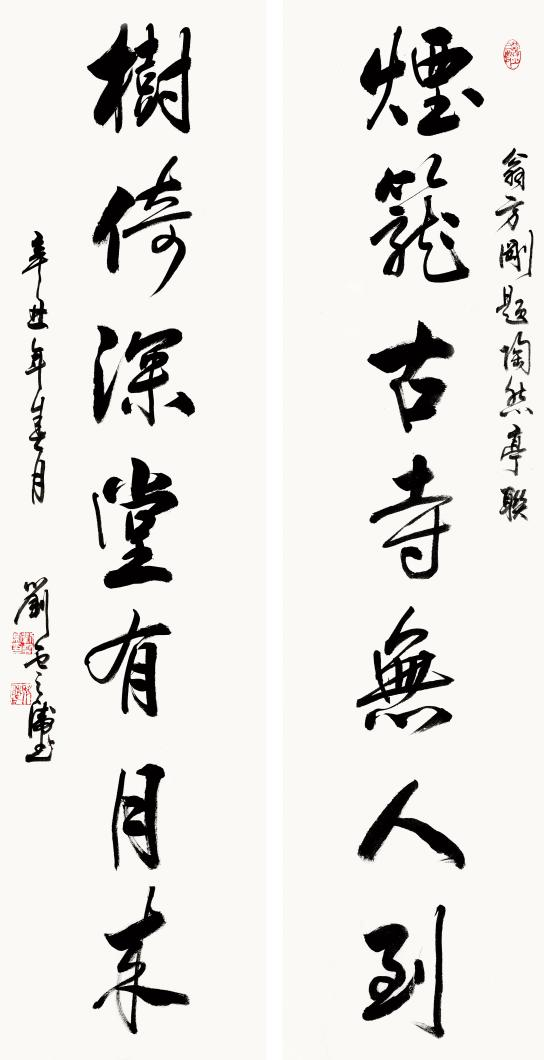 翁方剛題陶然亭聯
煙籠古寺無人到
樹倚深堂有月来
辛丑年春月
劉